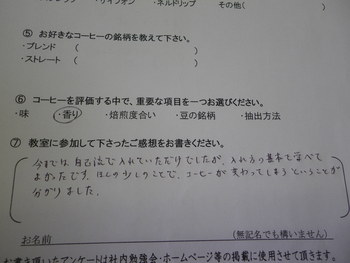 ・サイフォン　・ネルドリップ　その他(
⑤ お好きなコーヒーの銘柄を教えて下さい。
・ブレンド　(　　　)
・ストレート　(　　　)
⑥ コーヒーを評価する中で、重要な項目を一つお選びください。
・味　・香り　・焙煎度合い　・豆の銘柄　・抽出方法
⑦ 教室に参加して下さったご感想をお書きください。
今までは自己流で入れていただけでしたが、入れ方の基本を学べて
よかったです。ほんの少しのことで、コーヒーが変わってしまうということが
分かりました。
お名前　(無記名でも構いません)
お書き頂いたアンケートは社内勉強会・ホームページ等の掲載に使用させて頂きます。